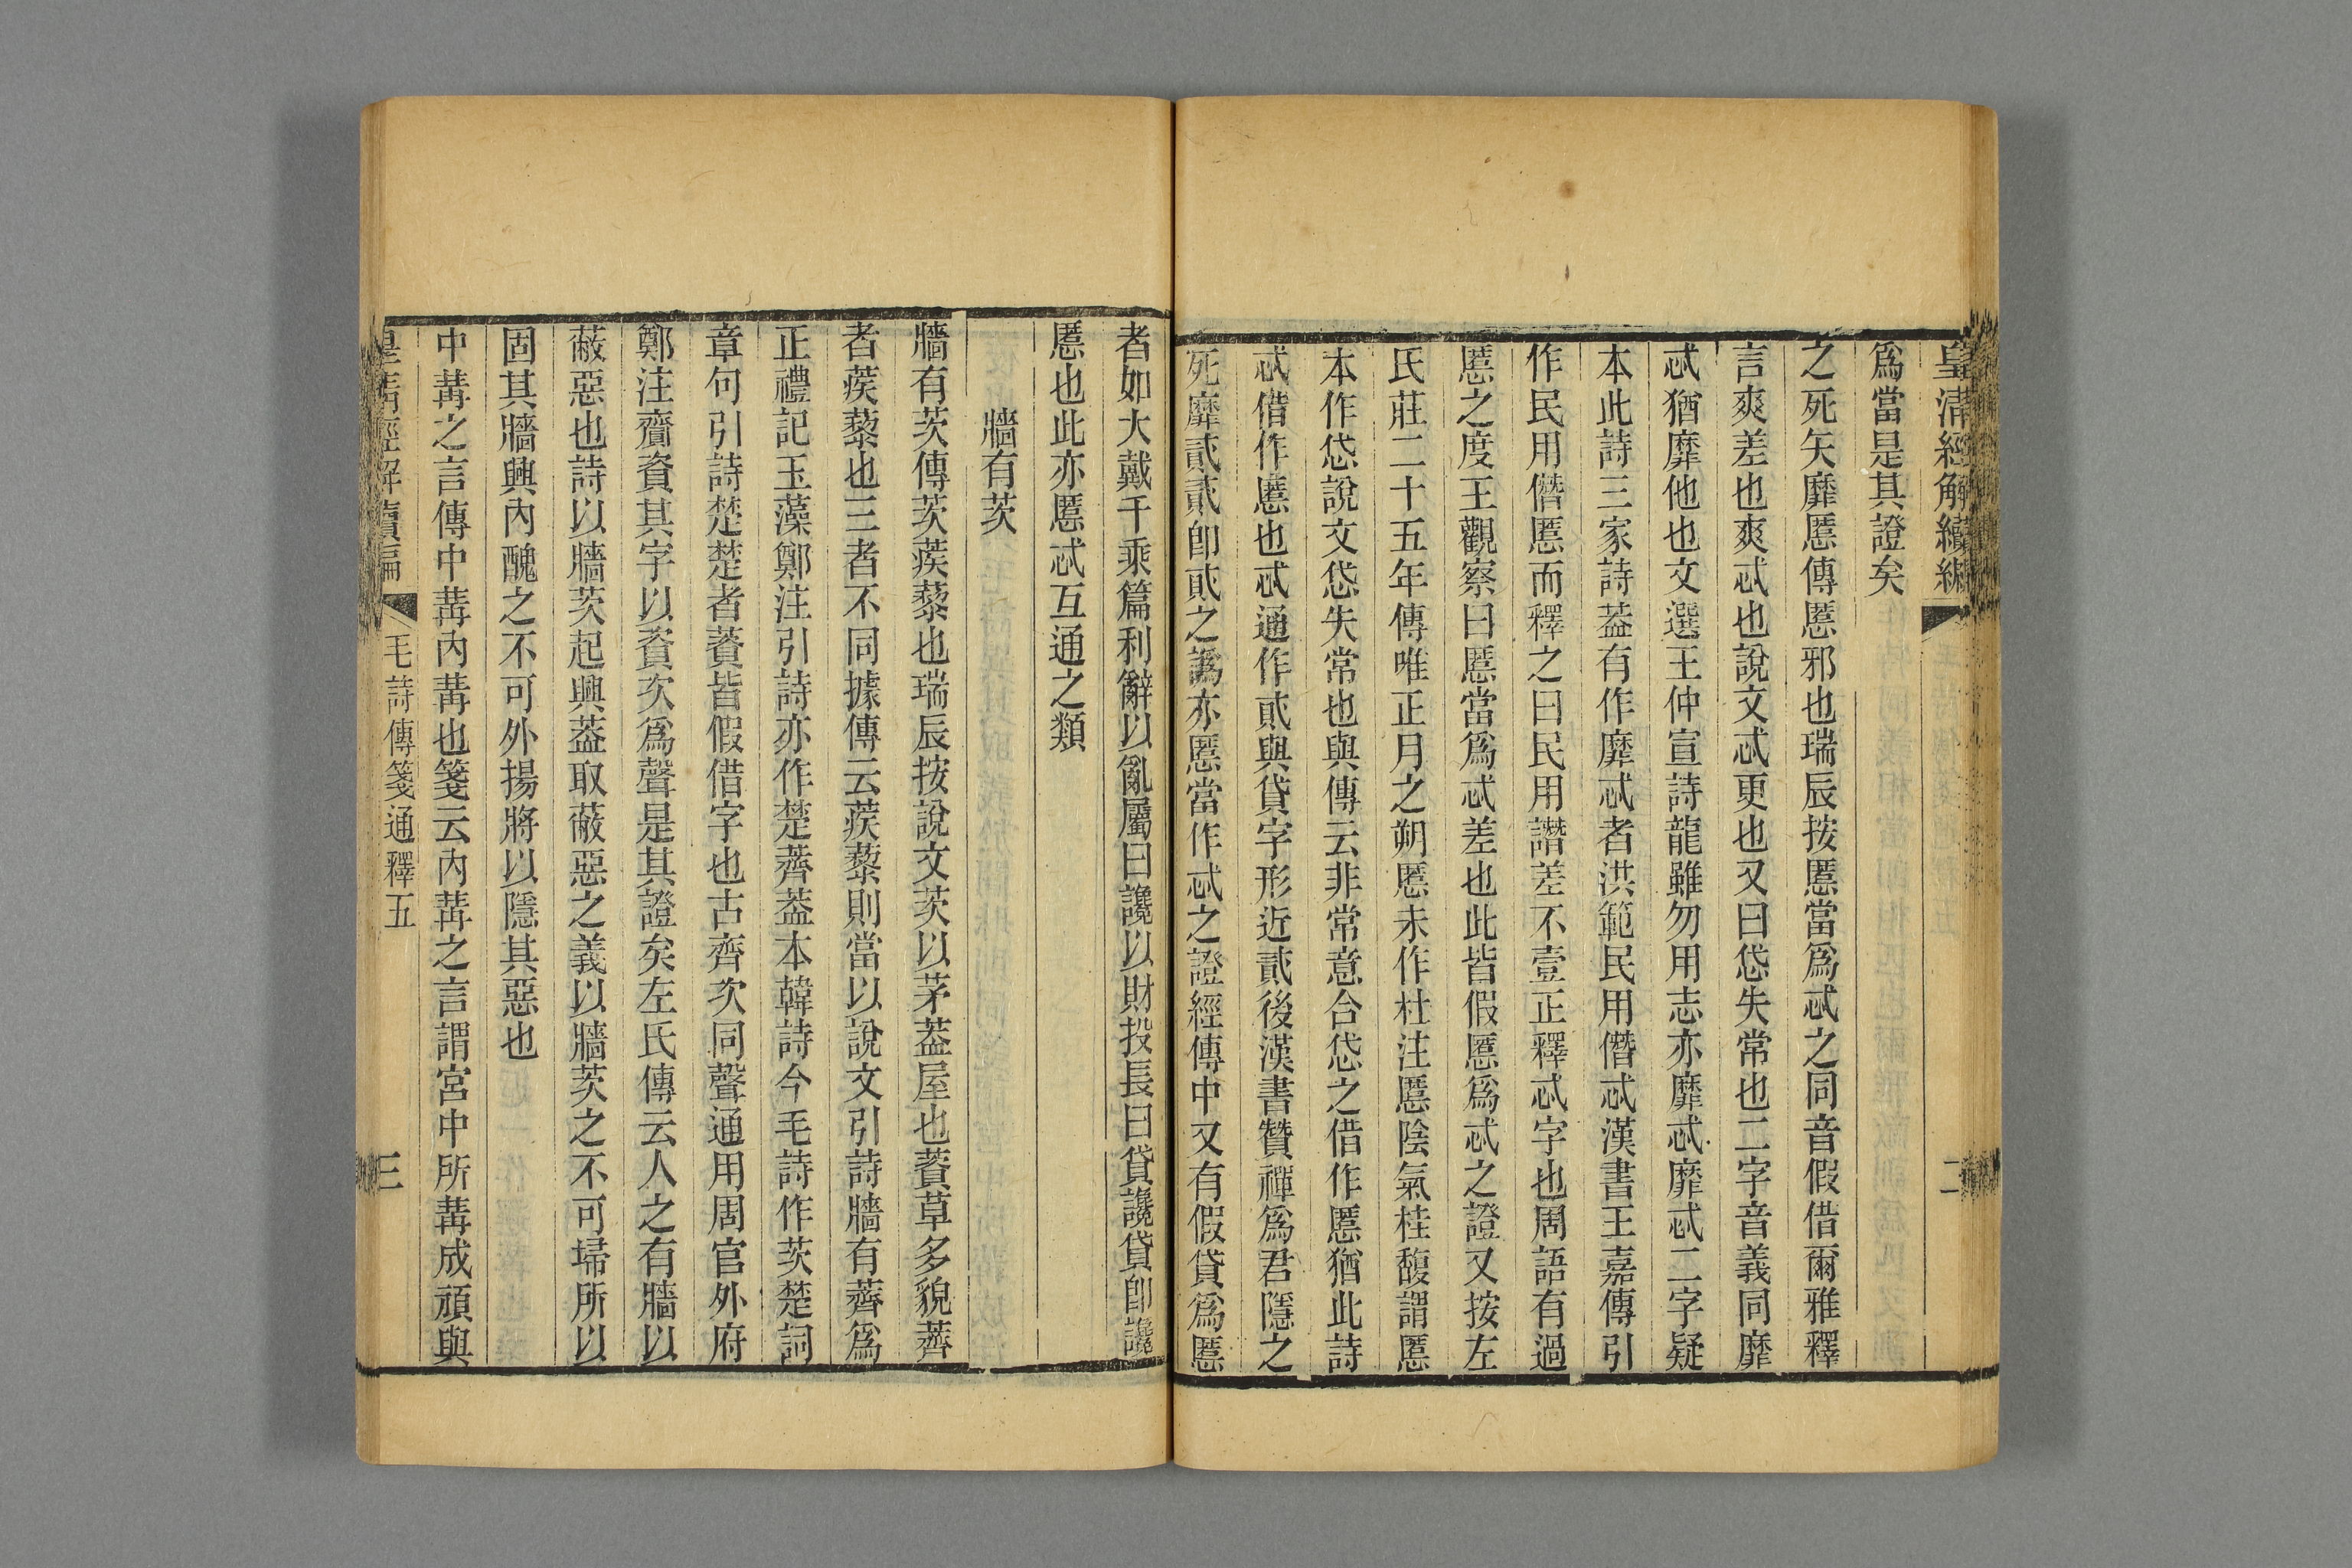 皇清經解續編 二
爲當是其證矣
之死矢靡慝傳慝邪也瑞辰按慝當爲忒之同音假借爾雅釋
言爽差也爽忒也說文忒更也又曰怤失常也二字音義同靡
忒猶靡他也文選王仲宣詩龍雖勿用志亦靡忒靡忒二字疑
本此詩三家詩葢有作靡忒者洪範民用僭忒漢書王嘉傳引
作民用僭慝而釋之曰民用譖差不壹正釋忒字也周語有過
慝之度王觀察曰慝當爲忒差也此皆假慝爲忒之證又按左
氏莊二十五年傳唯正月之朔慝未作杜注慝陰氣桂馥謂慝
本作怤說文怤失常也與傳云非常意合怤之借作慝猶此詩
忒借作慝也忒通作貮與貸字形近貳後漢書贊禪爲君隱之
死靡貳貳卽貮之譌亦慝當作忒之證經傳中又有假貸爲慝
者如大戴千乘篇利辭以亂屬曰讒以財投長曰貸讒貸卽讒
慝也此亦慝忒互通之類
牆有茨
牆有茨傳茨蒺藜也瑞辰按說文茨以茅葢屋也薋草多貌薺
者蒺藜也三者不同據傳云蒺藜則當以說文引詩牆有薺爲
正禮記玉藻鄭注引詩亦作楚薺葢本韓詩今毛詩作茨楚詞
章句引詩楚楚者薋皆假借字也古齊次同聲通用周官外府
鄭注齎資其字以齊次爲聲是其證矣左氏傳云人之有牆以
蔽惡也詩以牆茨起興葢取蔽惡之義以牆茨之不可埽所以
固其牆興內醜之不可外揚將以隱其惡也
中冓之言傳中冓內冓也箋云內冓之言謂宮中所冓成頑與
皇清經解續編 毛詩傳箋通釋五 三